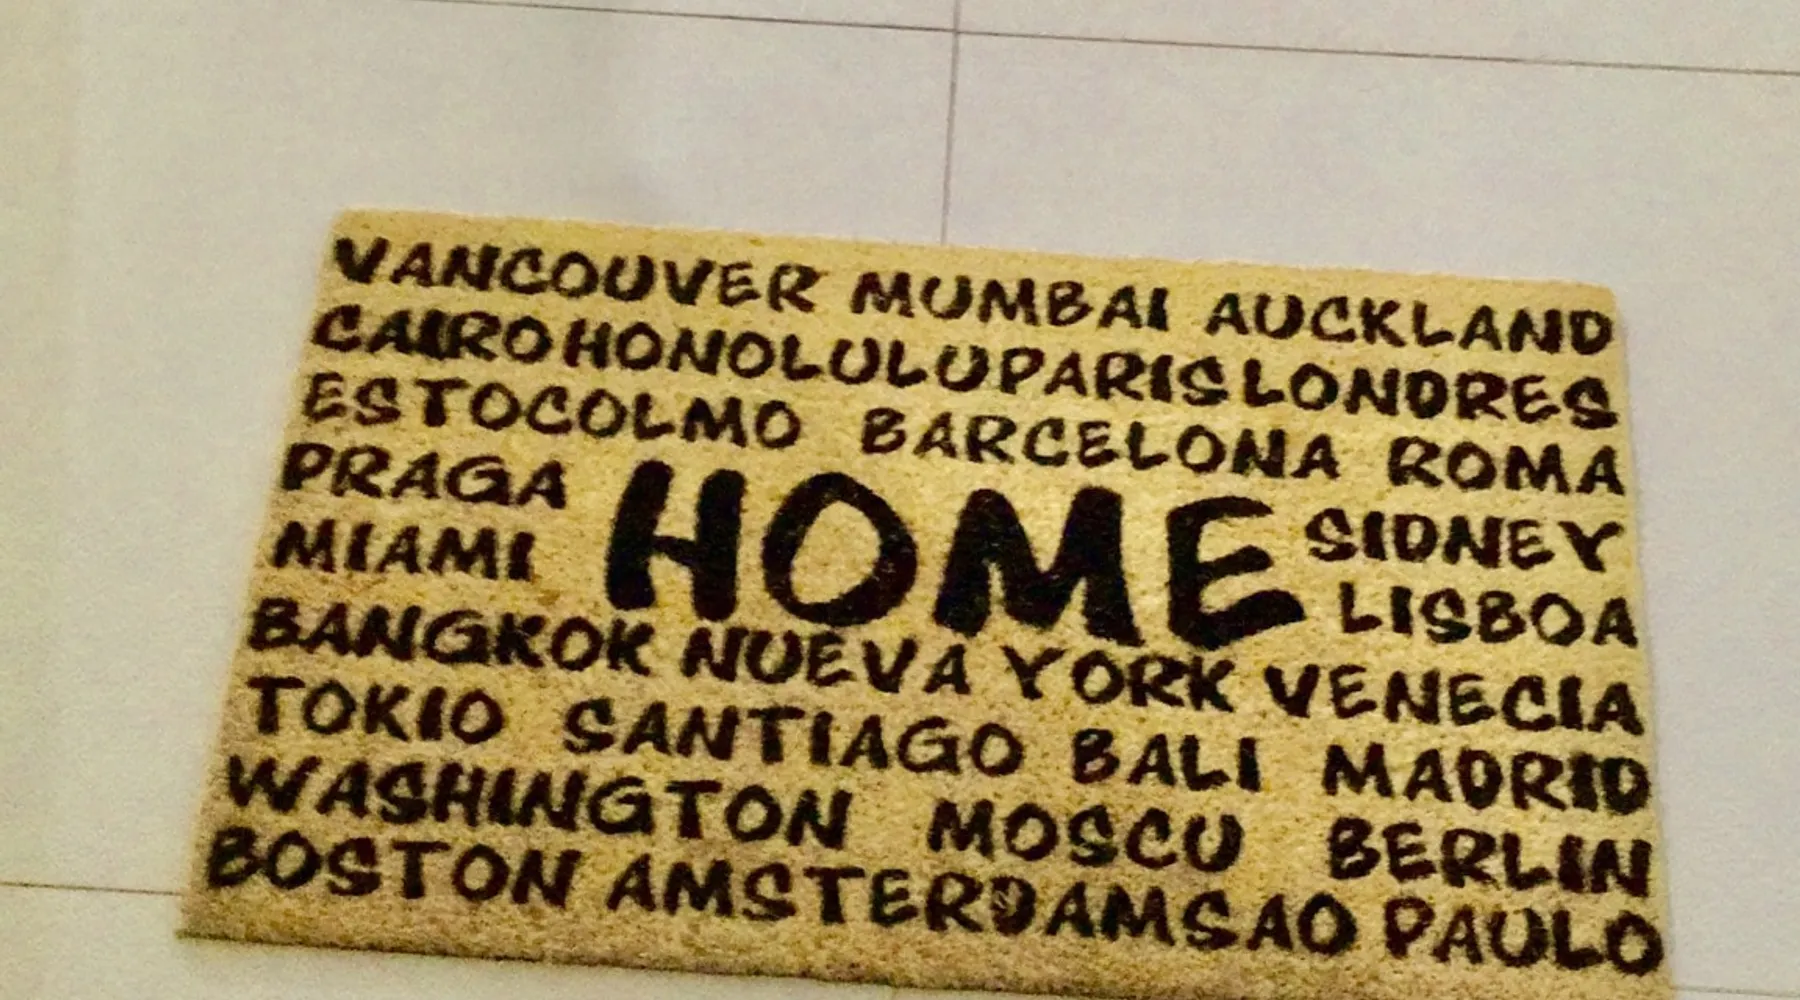 VANCOUVER MUMBAI AUCKLAND
CAIRO HONOLULU PARIS LONDRES
ESTOCOLMO BARCELONA ROMA
PRAGA HOME SIDNEY
MIAMI LISBOA
BANGKOK NUEVA YORK VENECIA
TOKIO SANTIAGO BALI MADRID
WASHINGTON MOSCU BERLIN
BOSTON AMSTERDAM SAO PAULO